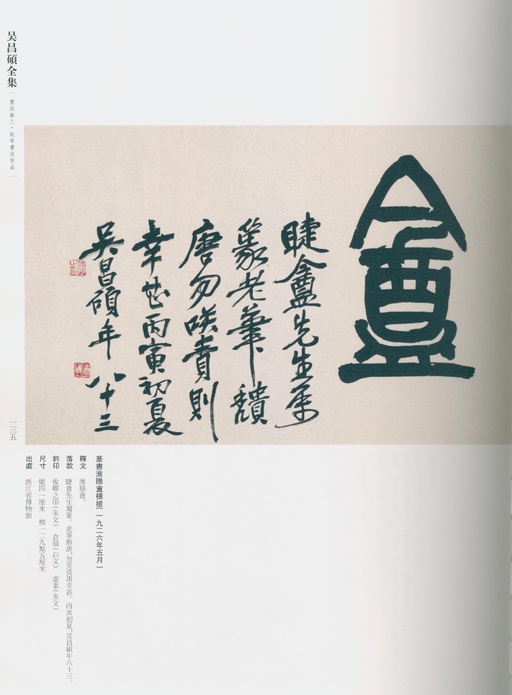 吴昌碩全集
書法卷二·紀年書法作品
盦
睫盦先生属
篆老筆頽
唐勿咲責則
幸甚丙寅初夏
吴昌碩年八十三
一三五
篆書淮隱盦橫披(一九二六年五月)
釋文 淮隱盦。
落款 睫盦先生屬篆。老筆頹唐,勿笑責則幸甚。丙寅初夏,吴昌碩年八十三。
鈐印 俊卿之印(朱文) 倉碩(白文) 虚素(朱文)
尺寸 縱四一厘米 橫一二九點五厘米
出處 浙江省博物館